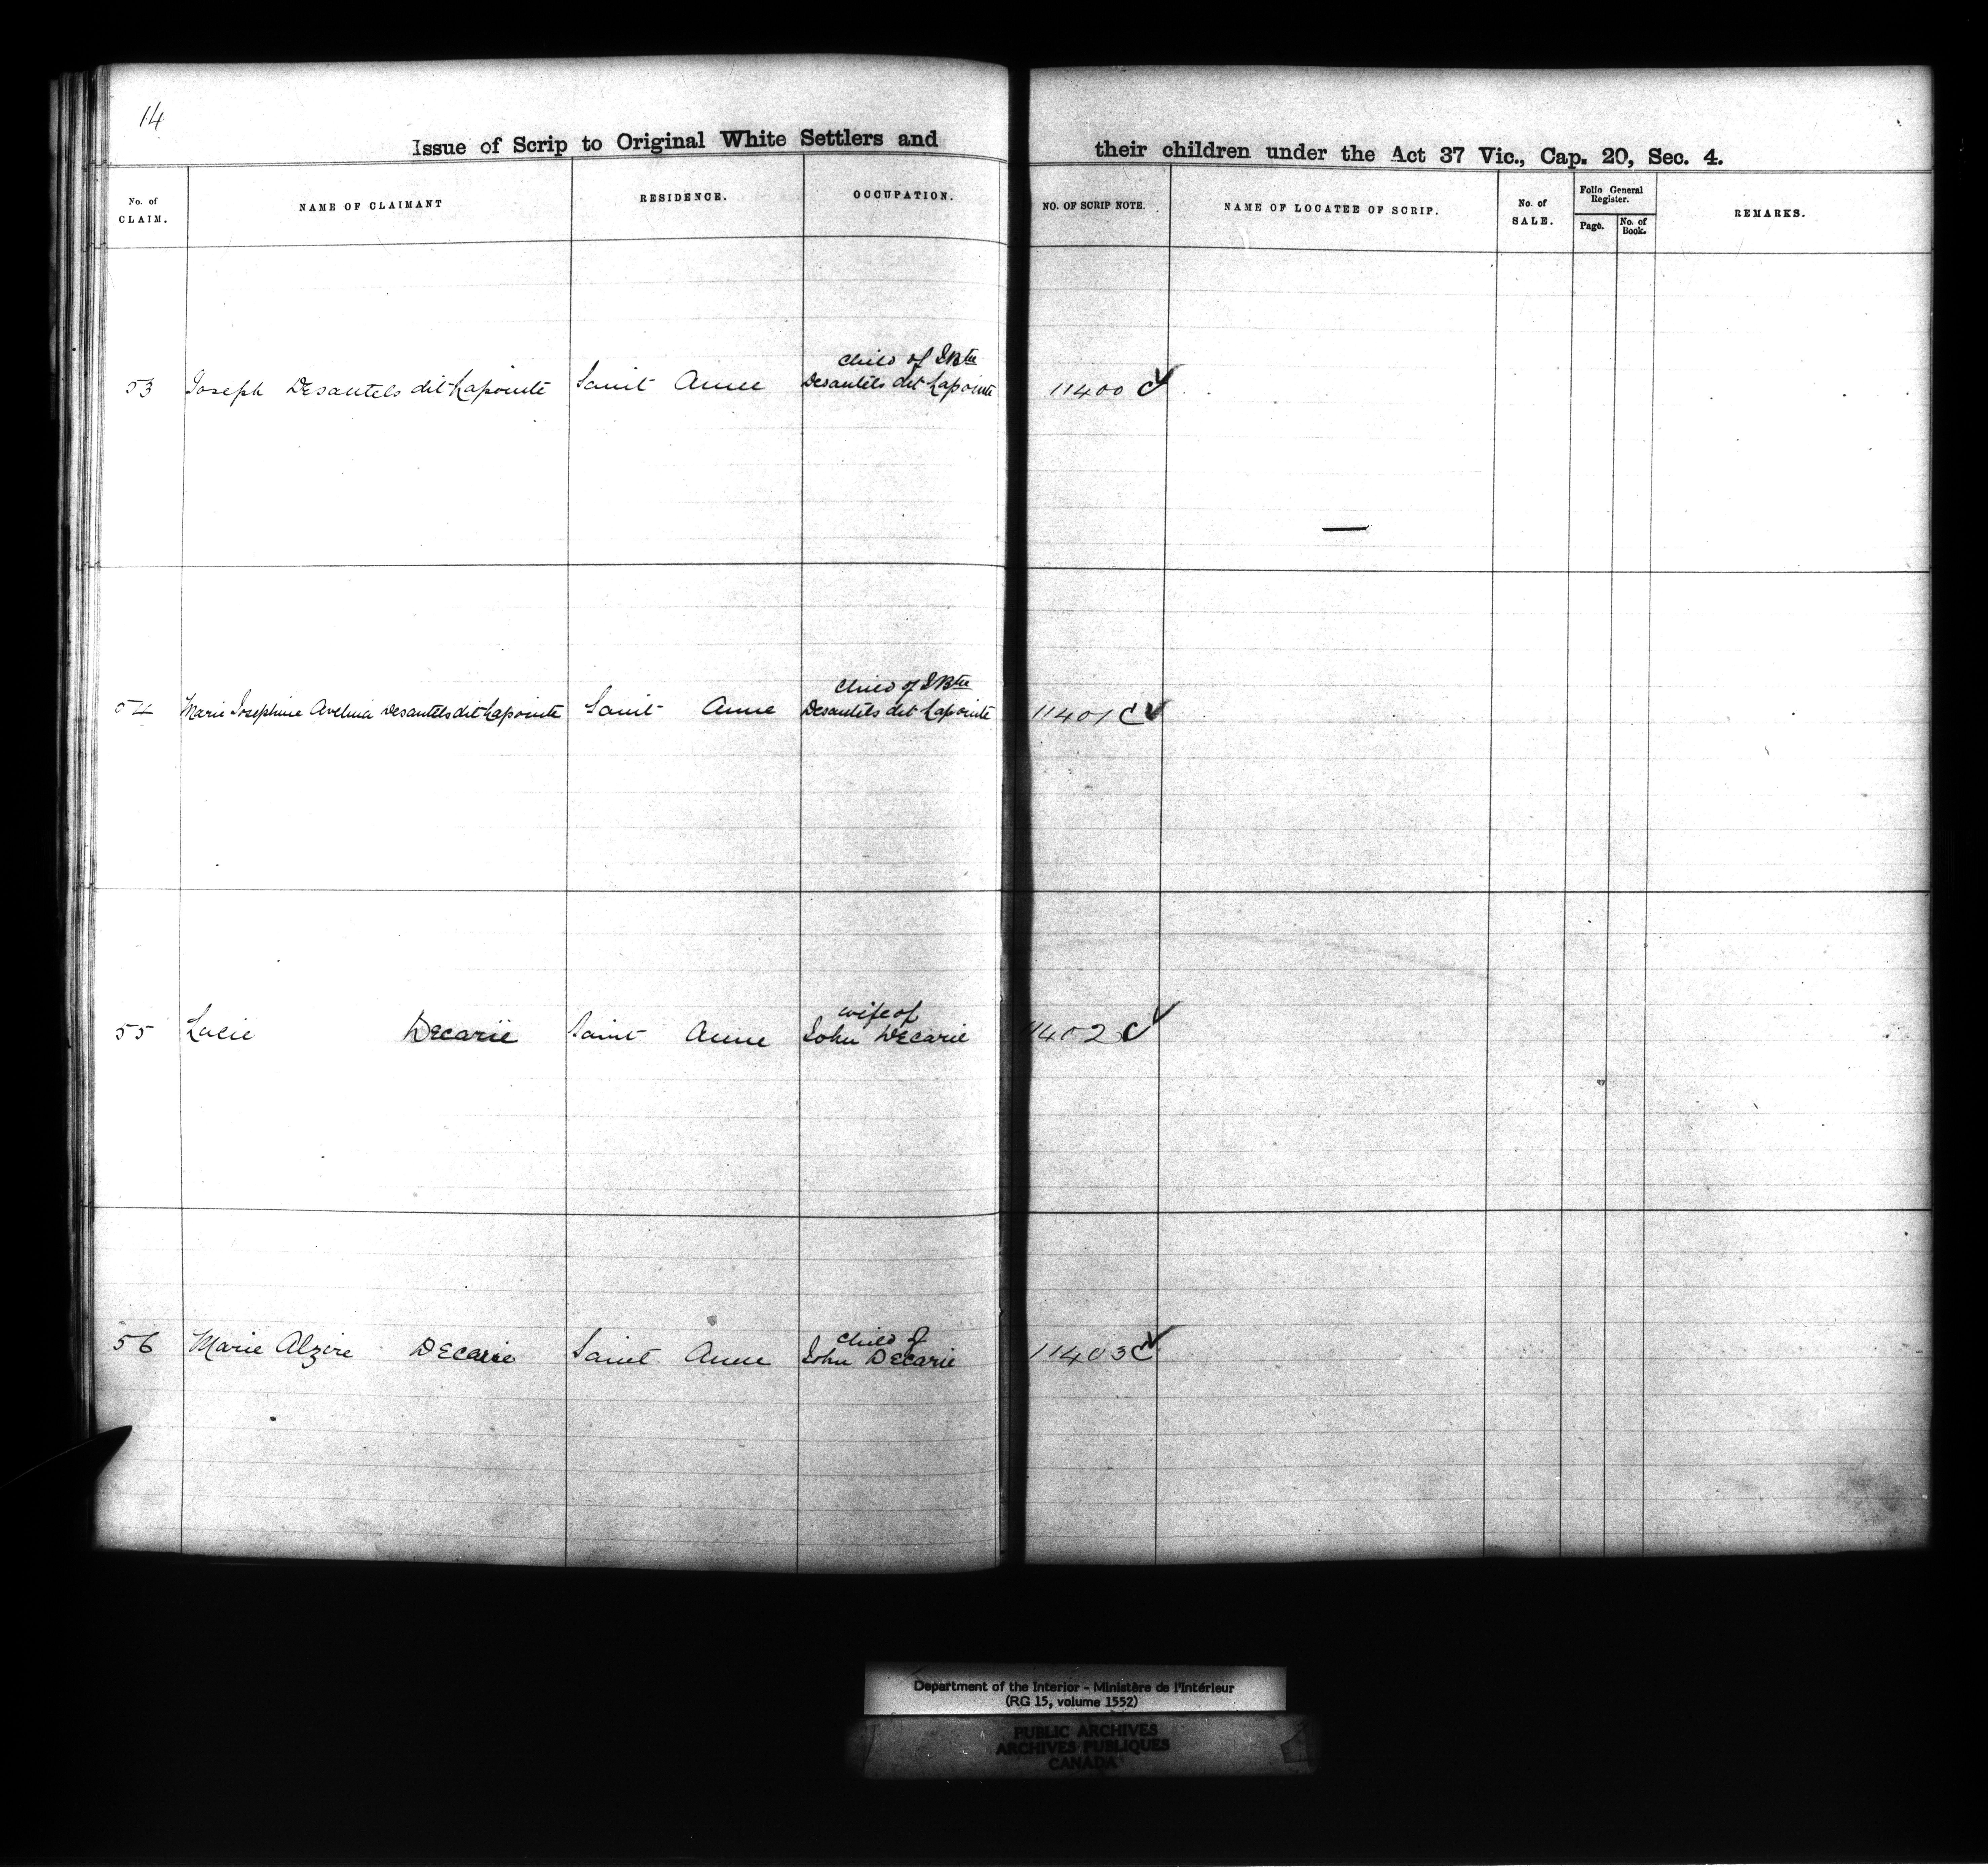 14
Issue of Scrip to Original White Settlers and their children under the Act 37 Vic., Cap. 20, Sec. 4.
No. of CLAIM. NAME OF CLAIMANT RESIDENCE. OCCUPATION. NO. OF SCRIP NOTE. NAME OF LOCATEE OF SCRIP. No. of SALE. Folio General Register. Page. No. of Book. REMARKS.
child of JBte
53 Joseph Desautels dit Lapointe Saint Anne Desautels dit Lapointe 11400 C ✓
child of JBte
54 Marie Josephine Avelina Desautels dit Lapointe Saint Anne Desautels dit Lapointe 11401 C ✓
wife of
55 Lucie Decarie Saint Anne John Decarie 11402 C ✓
child of
56 Marie Alzire Decarie Saint Anne John Decarie 11403 C ✓
Department of the Interior - Ministère de l'Intérieur
(RG 15, volume 1552)
PUBLIC ARCHIVES
ARCHIVES PUBLIQUES
CANADA